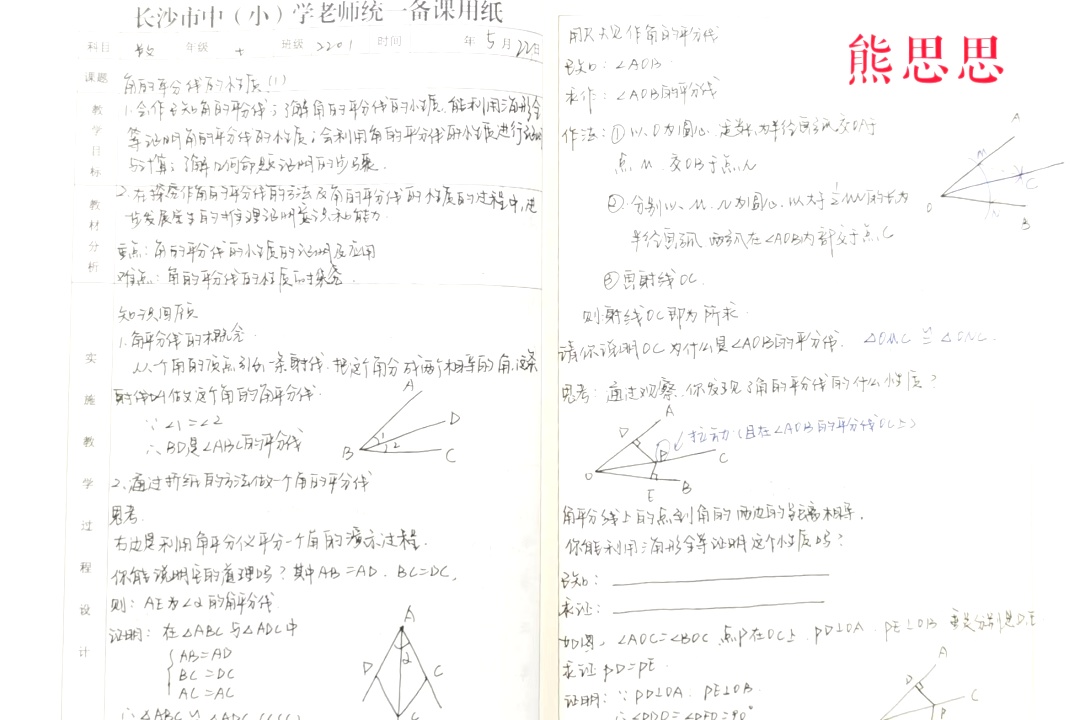 长沙市中（小）学老师统一备课用纸
科目 数 年级 七 班级 2201 时间 年 5 月 22 日
课题 角的平分线的性质（1）
教学目标
1.会作已知角的平分线；了解角的平分线的性质，能利用三角形全
等证明角的平分线的性质；会利用角的平分线的性质进行证明
与计算；了解几何命题证明的步骤.
教材分析
2.在探究作角的平分线的方法及角的平分线的性质的过程中，进一
步发展学生的推理证明意识和能力.
重点：角的平分线的性质的证明及应用
难点：角的平分线的性质的探究.
实施教学过程设计
知识回顾
1.角平分线的概念.
从一个角的顶点引出一条射线，把这个角分成两个相等的角，这条
射线叫做这个角的角平分线.
∵ ∠1=∠2
∴ BD是∠ABC的平分线
A
D
B
1
2
C
2.通过折纸的方法做一个角的平分线
思考.
右边是利用角平分仪平分一个角的演示过程.
你能说明它的道理吗？其中AB=AD，BC=DC，
则：AE为∠α的角平分线.
证明：在△ABC与△ADC中
AB=AD
BC=DC
AC=AC
∴△ABC≌△ADC (SSS)
A
2
D
C
C
熊思思
用尺规作角的平分线
已知：∠AOB.
求作：∠AOB的平分线
作法：①以O为圆心，定长为半径画弧交OA于
点M，交OB于点N
②分别以M、N为圆心，以大于½MN的长为
半径画弧，两弧在∠AOB内部交于点C
③画射线OC.
则射线OC即为所求.
A
M
C
O
N
B
请你说明OC为什么是∠AOB的平分线. △OMC≌△ONC.
思考：通过观察，你发现了角的平分线的什么性质？
A
D
P
拉动（且在∠AOB的平分线OC上）
C
O
E
B
角平分线上的点到角的两边的距离相等.
你能利用三角形全等证明这个性质吗？
已知：
求证：
如图，∠AOC=∠BOC，点P在OC上，PD⊥OA，PE⊥OB，垂足分别是D,E
求证PD=PE.
证明：∵PD⊥OA，PE⊥OB.
∴∠PDO=∠PEO=90°
A
D
C
P